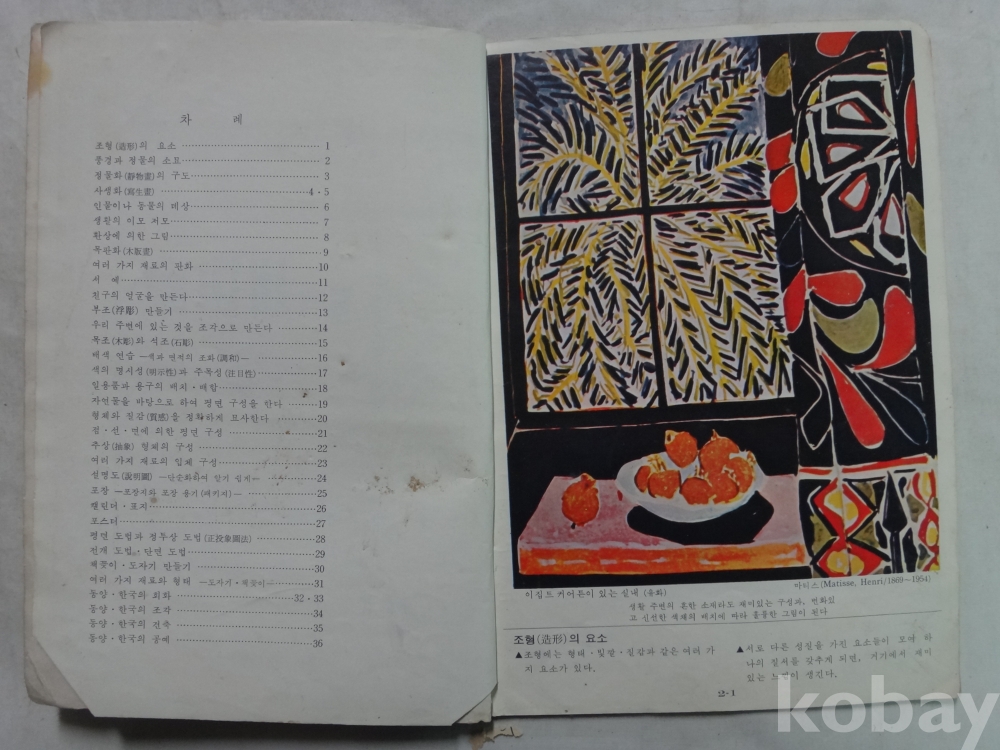 차 례
조형(造形)의 요소 1
풍경과 정물의 소묘 2
정물화(靜物畫)의 구도 3
사생화(寫生畫) 4·5
인물이나 동물의 데상 6
생활의 이모 저모 7
환상에 의한 그림 8
목판화(木版畫) 9
여러 가지 재료의 판화 10
서 예 11
친구의 얼굴을 만든다 12
부조(浮彫) 만들기 13
우리 주변에 있는 것을 조각으로 만든다 14
목조(木彫)와 석조(石彫) 15
배색 연습 —색과 면적의 조화(調和)— 16
색의 명시성(明示性)과 주목성(注目性) 17
일용품과 용구의 배치·배합 18
자연물을 바탕으로 하여 평면 구성을 한다 19
형체와 질감(質感)을 정확하게 묘사한다 20
점·선·면에 의한 평면 구성 21
추상(抽象) 형체의 구성 22
여러 가지 재료의 입체 구성 23
설명도(說明圖) —단순화하여 알기 쉽게— 24
포장 —포장지와 포장 용기(패키지) 25
캘린더·표지 26
포스터 27
평면 도법과 정투상 도법(正投象圖法) 28
전개 도법·단면 도법 29
책꽂이·도자기 만들기 30
여러 가지 재료와 형태 —도자기·책꽂이— 31
동양·한국의 회화 32·33
동양·한국의 조각 34
동양·한국의 건축 35
동양·한국의 공예 36
마티스(Matisse, Henri/1869~1954)
이집트 커어튼이 있는 실내 (유화)
생활 주변의 흔한 소재라도 재미있는 구성과, 변화있
고 신선한 색채의 배치에 따라 훌륭한 그림이 된다
조형(造形)의 요소
▲조형에는 형태·빛깔·질감과 같은 여러 가
지 요소가 있다.
▲서로 다른 성질을 가진 요소들이 모여 하
나의 질서를 갖추게 되면, 거기에서 재미
있는 느낌이 생긴다.
2-1
kobay